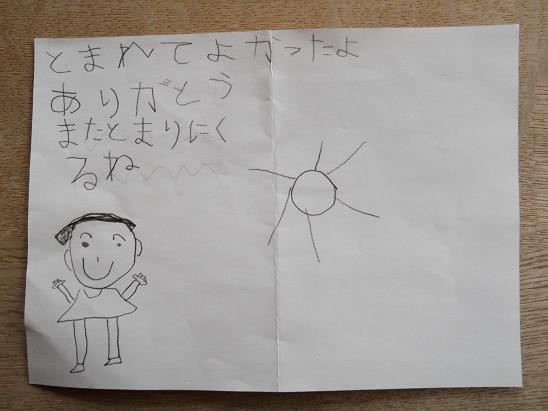 とまれてよかったよ
ありがとう
またとまりにく
るね